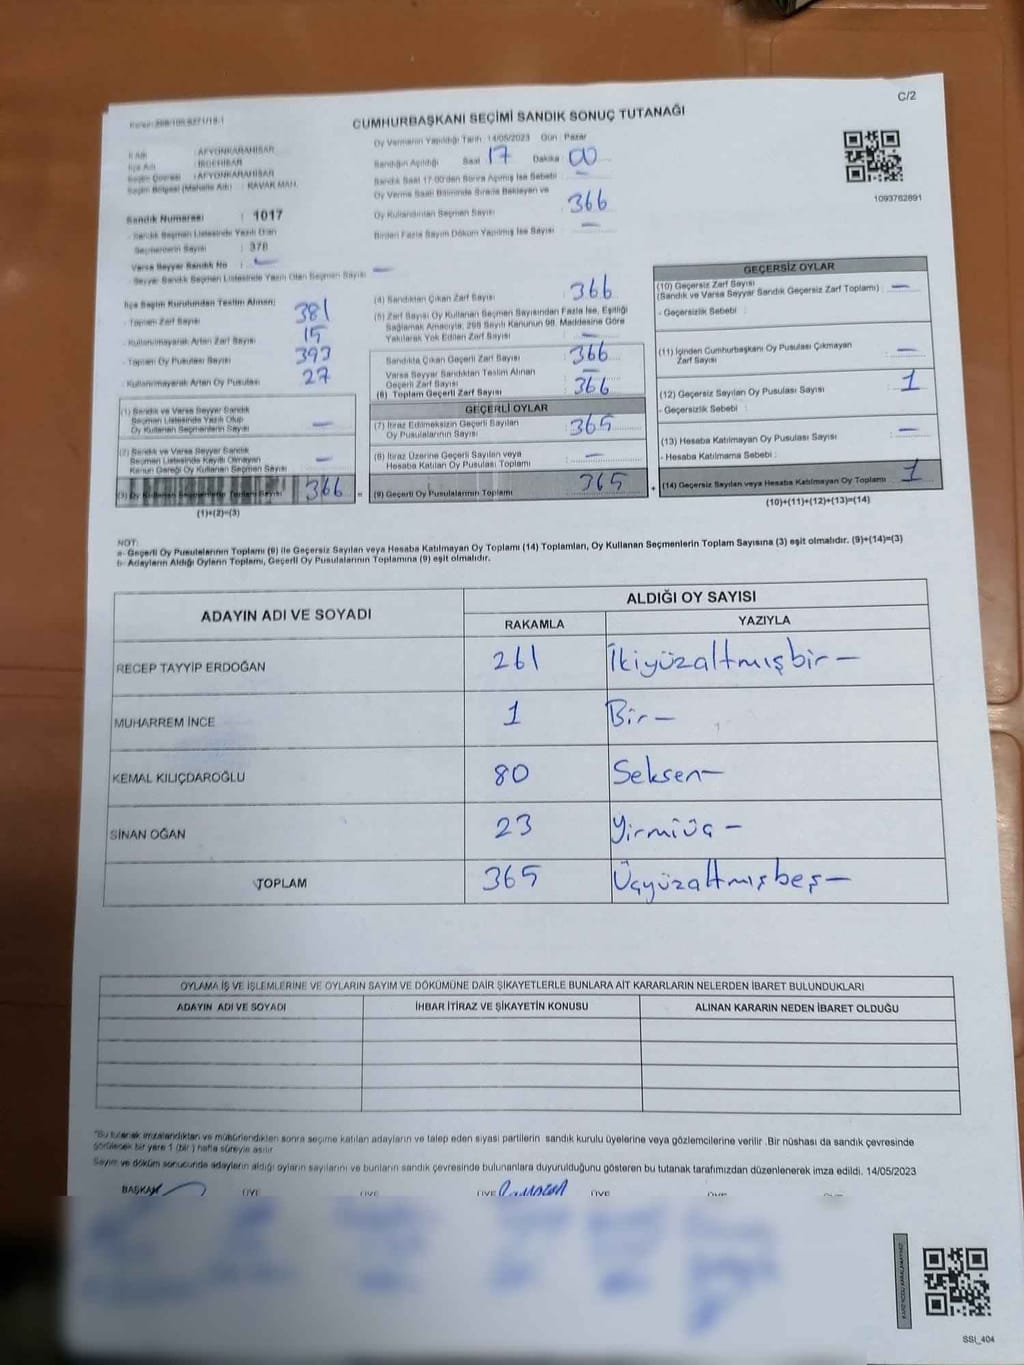 C/2
CUMHURBAŞKANI SEÇİMİ SANDIK SONUÇ TUTANAĞI
İl Adı : AFYONKARAHİSAR
İlçe Adı : İSCEHİSAR
Seçim Çevresi : AFYONKARAHİSAR
Seçim Bölgesi (Mahalle Adı) : KAVAK MAH.
Sandık Numarası : 1017
Sandık Seçmen Listesinde Yazılı Olan
Seçmenlerin Sayısı : 376
Varsa Seyyar Sandık No : —
- Seyyar Sandık Seçmen Listesinde Yazılı Olan Seçmen Sayısı —
Oy Vermenin Yapıldığı Tarih 14/05/2023 Gün : Pazar
Sandığın Açıldığı Saat 17 Dakika 00
Sandık Saat 17:00'den Sonra Açılmış İse Sebebi : —
Oy Verme Saati Bitiminde Sırada Bekleyen ve
Oy Kullandırılan Seçmen Sayısı 366
Birden Fazla Sayım Döküm Yapılmış İse Sayısı —
1093762891
İlçe Seçim Kurulundan Teslim Alınan;
- Toplam Zarf Sayısı 381
- Kullanılmayarak Artan Zarf Sayısı 15
- Toplam Oy Pusulası Sayısı 393
- Kullanılmayarak Artan Oy Pusulası 27
(1) Sandık ve Varsa Seyyar Sandık
Seçmen Listesinde Yazılı Olup
Oy Kullanan Seçmenlerin Sayısı —
(2) Sandık ve Varsa Seyyar Sandık
Seçmen Listesinde Kayıtlı Olmayan
Kanun Gereği Oy Kullanan Seçmen Sayısı —
(3) Oy Kullanan Seçmenlerin Toplam Sayısı 366
(1)+(2)=(3)
(4) Sandıktan Çıkan Zarf Sayısı 366
(5) Zarf Sayısı Oy Kullanan Seçmen Sayısından Fazla İse, Eşitliği
Sağlamak Amacıyla, 298 Sayılı Kanunun 98. Maddesine Göre
Yakılarak Yok Edilen Zarf Sayısı —
Sandıkta Çıkan Geçerli Zarf Sayısı 366
Varsa Seyyar Sandıktan Teslim Alınan
Geçerli Zarf Sayısı —
(6) Toplam Geçerli Zarf Sayısı 366
GEÇERLİ OYLAR
(7) İtiraz Edilmeksizin Geçerli Sayılan
Oy Pusulalarının Sayısı 365
(8) İtiraz Üzerine Geçerli Sayılan veya
Hesaba Katılan Oy Pusulası Toplamı —
= (9) Geçerli Oy Pusulalarının Toplamı 365
GEÇERSİZ OYLAR
(10) Geçersiz Zarf Sayısı
(Sandık ve Varsa Seyyar Sandık Geçersiz Zarf Toplamı) —
- Geçersizlik Sebebi :
(11) İçinden Cumhurbaşkanı Oy Pusulası Çıkmayan
Zarf Sayısı —
(12) Geçersiz Sayılan Oy Pusulası Sayısı 1
- Geçersizlik Sebebi :
(13) Hesaba Katılmayan Oy Pusulası Sayısı —
- Hesaba Katılmama Sebebi :
+ (14) Geçersiz Sayılan veya Hesaba Katılmayan Oy Toplamı 1
(10)+(11)+(12)+(13)=(14)
NOT:
a- Geçerli Oy Pusulalarının Toplamı (9) ile Geçersiz Sayılan veya Hesaba Katılmayan Oy Toplamı (14) Toplamları, Oy Kullanan Seçmenlerin Toplam Sayısına (3) eşit olmalıdır. (9)+(14)=(3)
b- Adayların Aldığı Oyların Toplamı, Geçerli Oy Pusulalarının Toplamına (9) eşit olmalıdır.
ADAYIN ADI VE SOYADI
ALDIĞI OY SAYISI
RAKAMLA YAZIYLA
RECEP TAYYİP ERDOĞAN 261 İkiyüzaltmışbir —
MUHARREM İNCE 1 Bir —
KEMAL KILIÇDAROĞLU 80 Seksen —
SİNAN OĞAN 23 Yirmiüç —
TOPLAM 365 Üçyüzaltmışbeş —
OYLAMA İŞ VE İŞLEMLERİNE VE OYLARIN SAYIM VE DÖKÜMÜNE DAİR ŞİKAYETLERLE BUNLARA AİT KARARLARIN NELERDEN İBARET BULUNDUKLARI
ADAYIN ADI VE SOYADI İHBAR İTİRAZ VE ŞİKAYETİN KONUSU ALINAN KARARIN NEDEN İBARET OLDUĞU
"Bu tutanak imzalandıktan ve mühürlendikten sonra seçime katılan adayların ve talep eden siyasi partilerin sandık kurulu üyelerine veya gözlemcilerine verilir .Bir nüshası da sandık çevresinde
görülecek bir yere 1 (bir ) hafta süreyle asılır
Sayım ve döküm sonucunda adayların aldığı oyların sayılarını ve bunların sandık çevresinde bulunanlara duyurulduğunu gösteren bu tutanak tarafımızdan düzenlenerek imza edildi. 14/05/2023
BAŞKAN ÜYE ÜYE ÜYE ÜYE
SSI_404